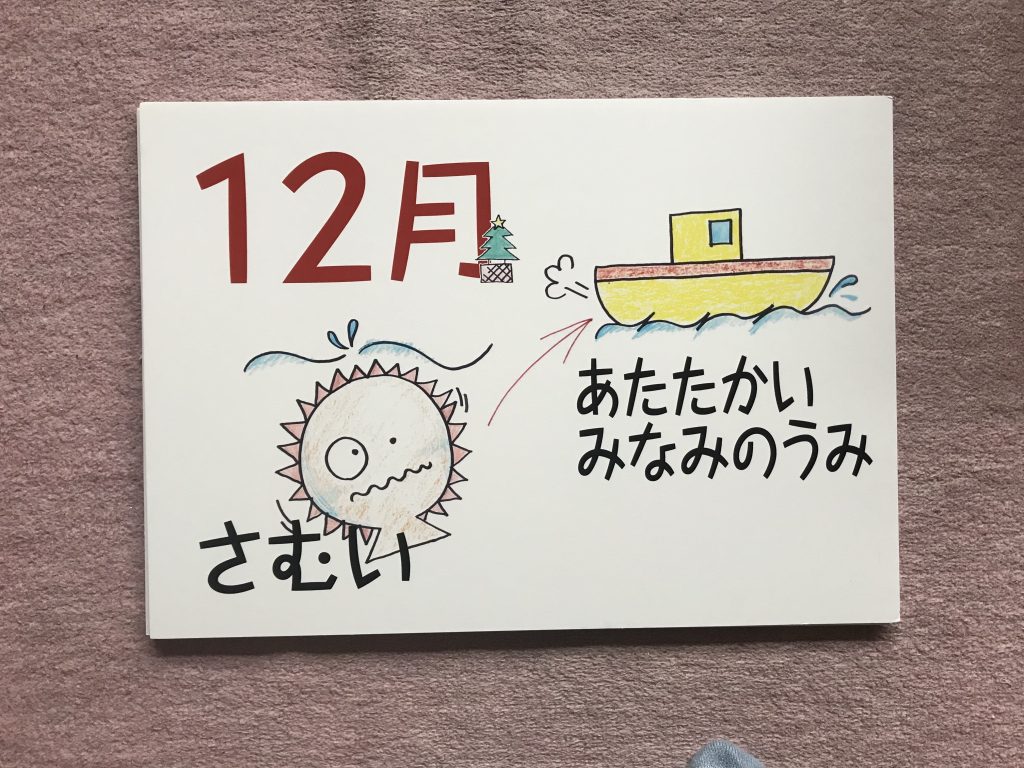 12月
あたたかい
みなみのうみ
さむい